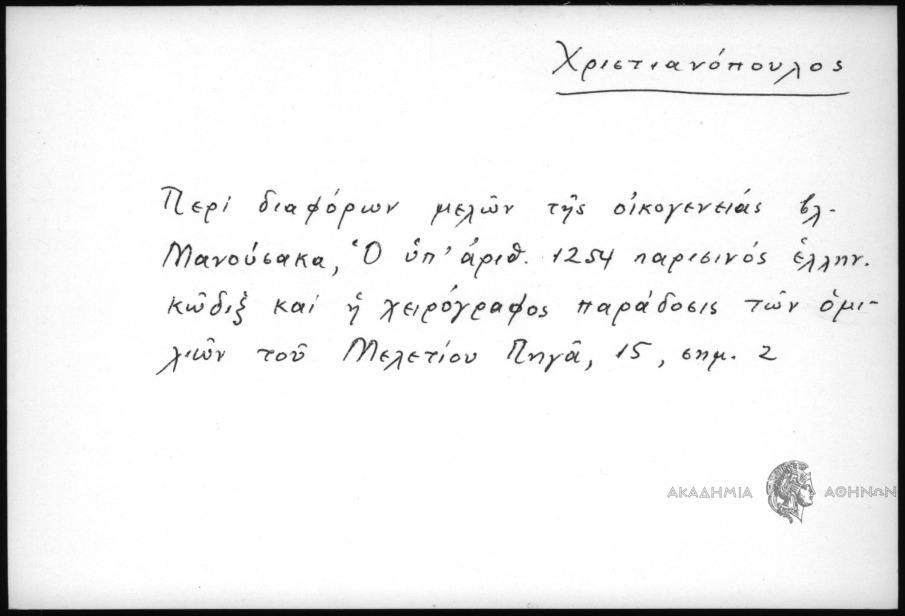 Χριστιανόπουλος
Περί διαφόρων μελῶν τῆς οἰκογενείας βλ.
Μανούσακα, Ὁ ὑπ' ἀριθ. 1254 παρισινός ἑλλην.
κῶδιξ καί ἡ χειρόγραφος παράδοσις τῶν ὁμι-
λιῶν τοῦ Μελετίου Πηγᾶ, 15, σημ. 2
ΑΚΑΔΗΜΙΑ ΑΘΗΝΩΝ